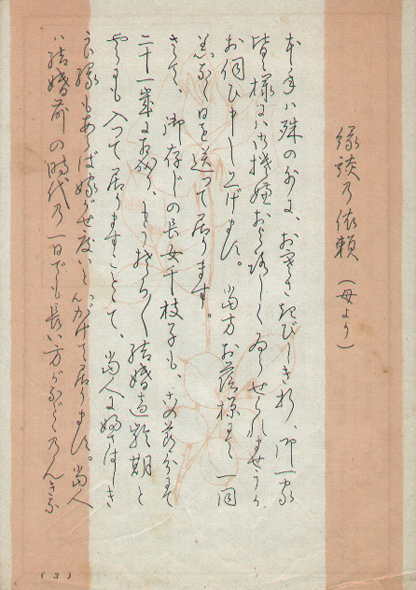 縁談の依頼（母より）
本年は殊の外よ、お寒さきびしき折、御一家
皆々様には御機嫌およろしくゐらせられませうか
お伺ひ申し上げます。当方お蔭様にて一同
無事に日を送って居ります。
さて、御存じの長女千枝子も、
二十一歳に相成り、もう 結婚適齢期と
やらにも入って居りますことゝて、当人に ふさはしき
良縁もあらば嫁がせ度いと心がけて居ります。当人
は結婚前の時代の一日でも長い方がなどゝのんきな
(3)